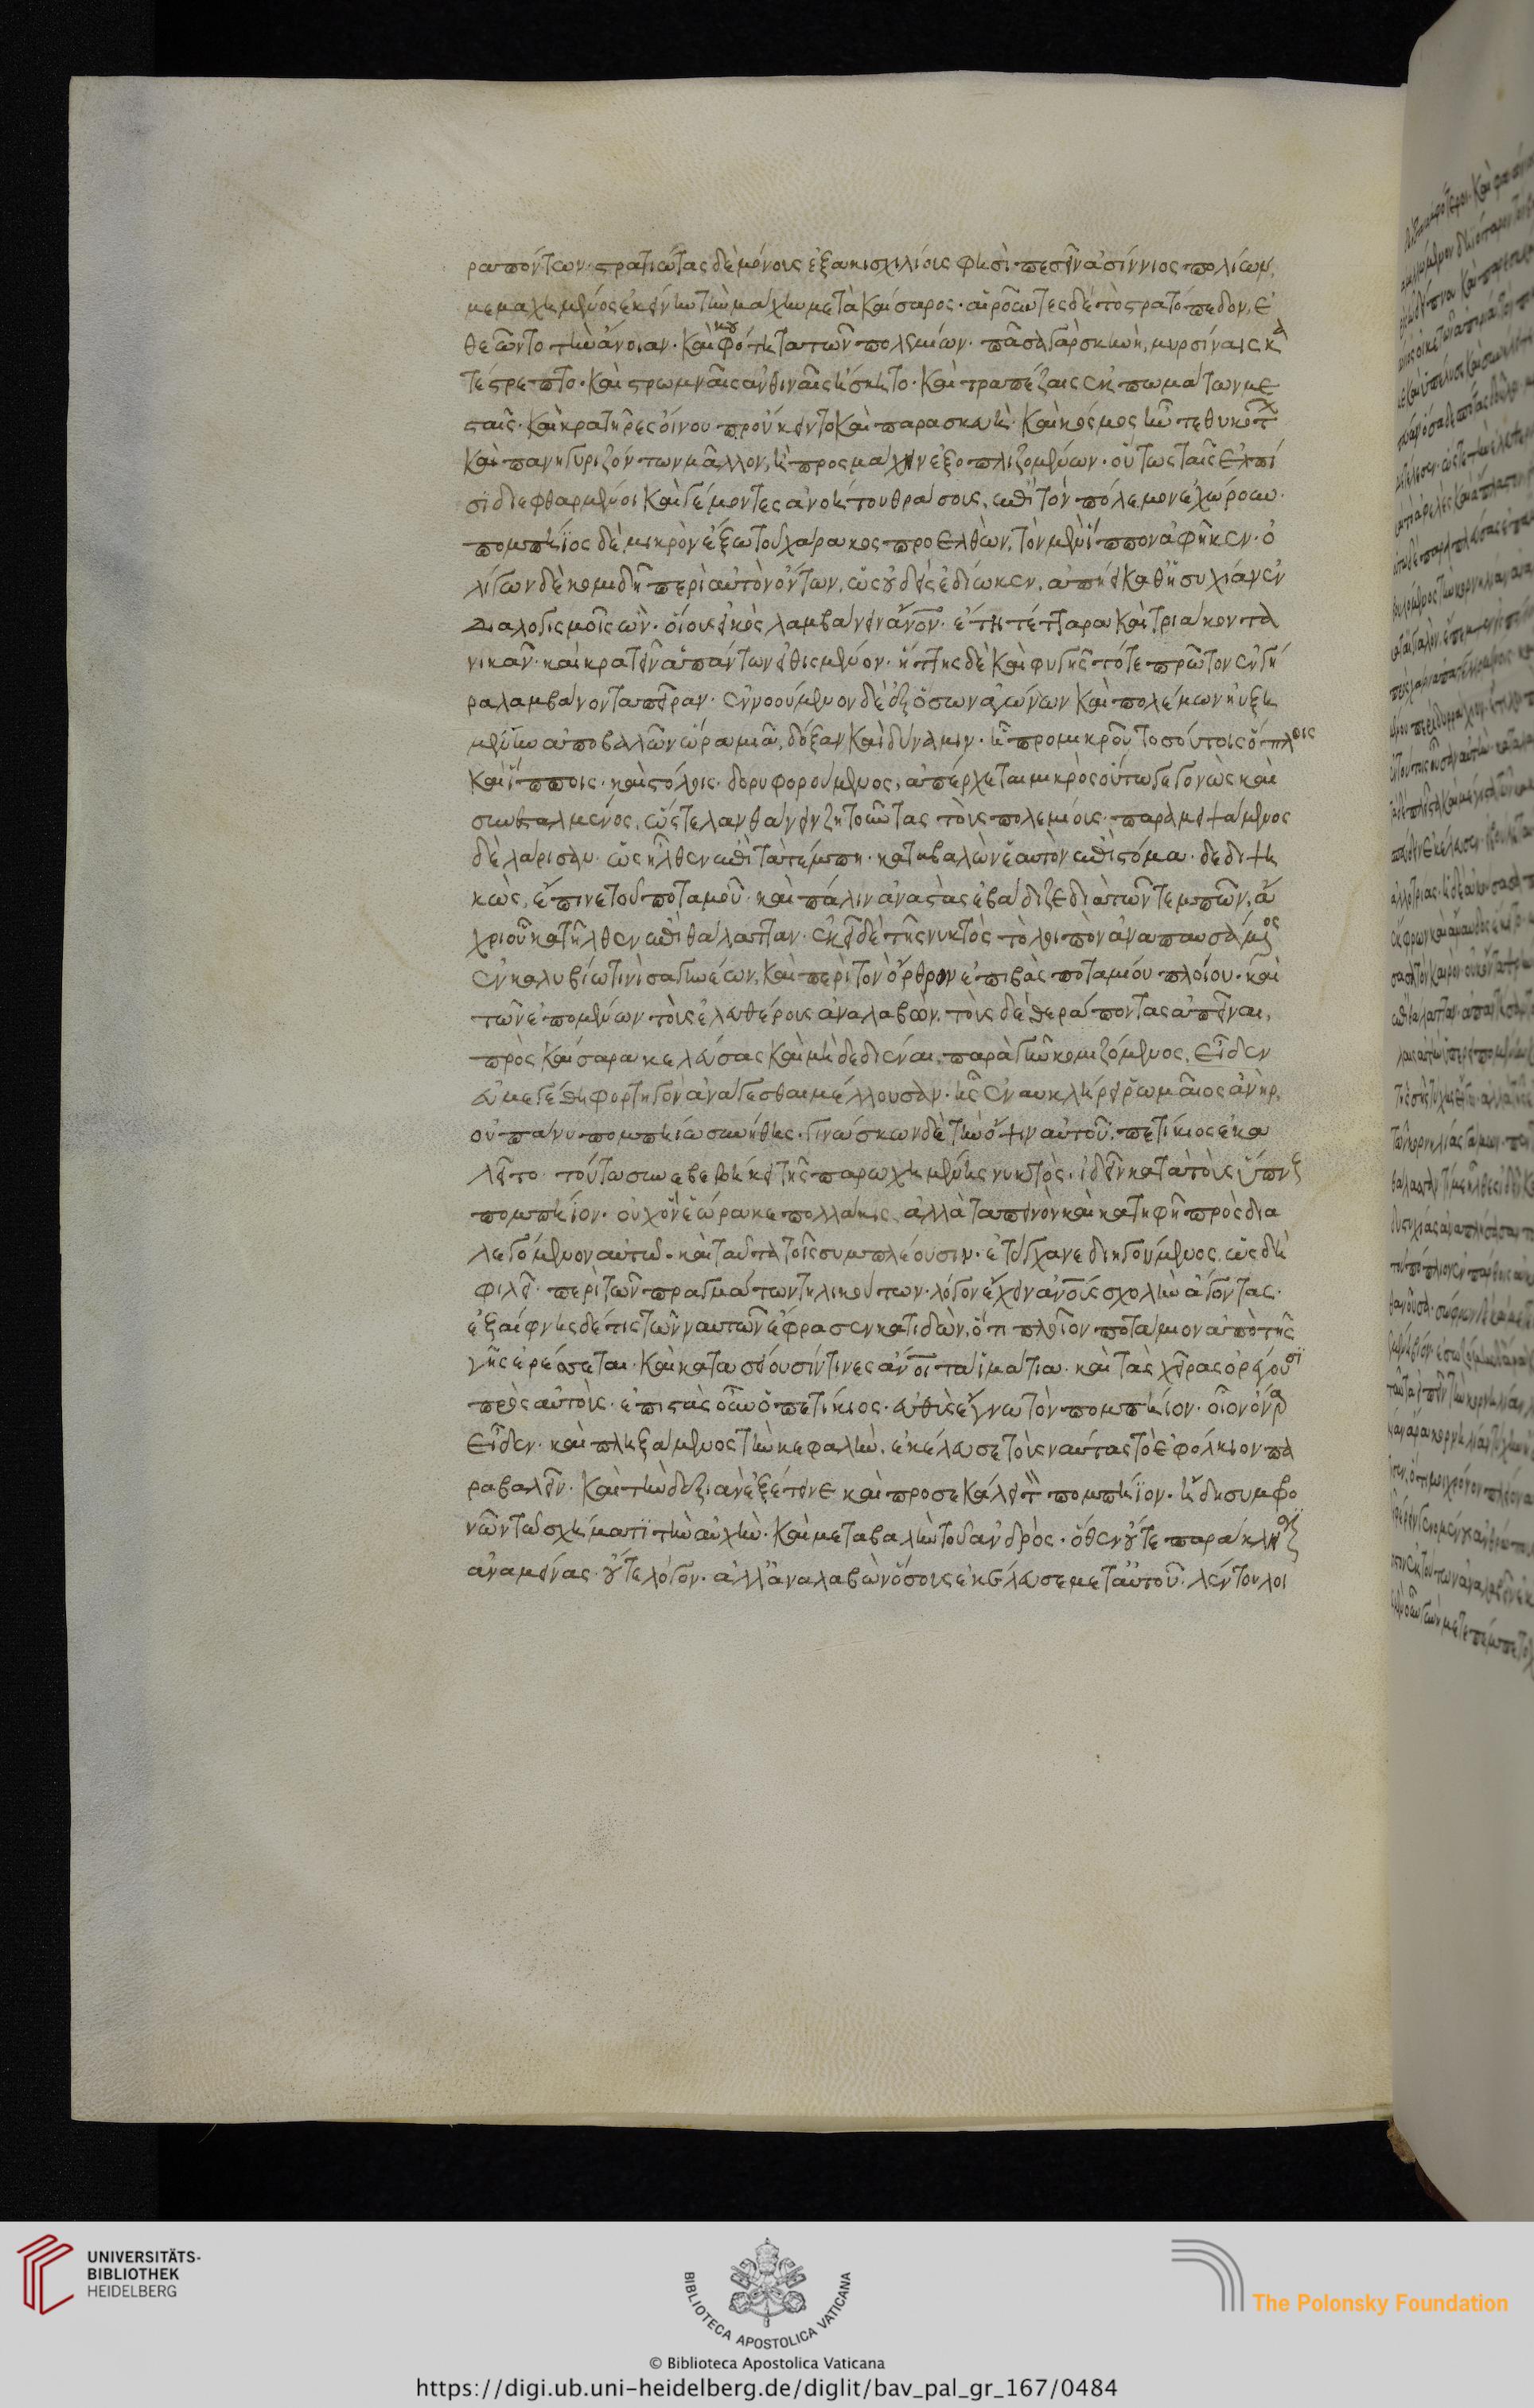 ραπόντων· στρατιώτας δὲ μόνους ἑξακισχιλίους φησὶ πεσεῖν ἀσίννιος πολίων,
μεμαχημένος ἐκείνην τὴν μάχην μετὰ καίσαρος· αἱροῦντες δὲ τὸ στρατόπεδον, ἐ
θεῶντο τὴν ἄνοιαν· καὶ κουφότητα τῶν πολεμίων· πᾶσα γὰρ σκηνὴ, μυρσίναις κα
τέστρεπτο· καὶ στρωμναῖς ἀνθιναῖς ἤσκητο· καὶ τραπέζαις ἐκπωμάτων με
σταῖς· καὶ κρατῆρες οἴνου προύκειντο καὶ παρασκευὴ· καὶ κόσμος ἦν τεθυκότων
καὶ πανηγυριζόντων μᾶλλον, ἢ πρὸς μάχην ἐξοπλιζομένων· οὕτως ταῖς ἐλπί
σι διεφθαρμένοι καὶ γέμοντες ἀνοήτου θράσους, ἐπὶ τὸν πόλεμον ἐχώρουν·
πομπήϊος δὲ μικρὸν ἔξω τοῦ χάρακος προελθὼν, τὸν μὲν ἵππον ἀφῆκεν· ὀ
λίγων δὲ κομιδῆ περὶ αὐτὸν ὄντων, ὡς οὐδεὶς ἐδίωκεν, ἀπήει καθ' ἡσυχίαν ἐν
διαλογισμοῖς ὢν· οἵους εἰκὸς λαμβάνειν ἄνον· ἔτη τέτταρα καὶ τριάκοντα
νικᾶν· καὶ κρατεῖν ἁπάντων εἰθισμένον· ἥττης δὲ καὶ φυγῆς τότε πρῶτον ἐν γή
ρα λαμβάνοντα πεῖραν· ἐννοούμενον δὲ ἐξ ὅσων ἀγώνων καὶ πολέμων ηὐξη
μένην ἀποβαλὼν ὥρα μιᾶ, δόξαν καὶ δύναμιν· ἧ πρὸ μικροῦ τοσούτοις ὅπλοις
καὶ ἵπποις· καὶ στόλοις· δορυφορούμενος, ἀπέρχεται μικρὸς οὕτω γεγονὼς καὶ
συνεσταλμένος, ὥστε λανθάνειν ζητοῦντας τοὺς πολεμίους· παραμειψάμενος
δὲ λάρισαν· ὡς ἦλθεν ἐπὶ τὰ τέμπη· καταβαλὼν ἑαυτὸν ἐπὶ στόμα· δεδιψη
κὼς, ἔπινε τοῦ ποταμοῦ· καὶ πάλιν ἀναστὰς ἐβάδιζε διὰ τῶν τεμπῶν, ἄ
χρι οὗ κατῆλθεν ἐπὶ θάλατταν· ἐκεῖ δὲ τῆς νυκτὸς τὸ λοιπὸν ἀναπαυσάμενος
ἐν καλυβίω τινὶ σαγηνέων, καὶ περὶ τὸν ὄρθρον ἐπιβὰς ποταμίου πλοίου· καὶ
τῶν ἑπομένων τοὺς ἐλευθέρους ἀναλαβὼν. τοὺς δὲ θεράποντας ἀπιέναι,
πρὸς καίσαρα κελεύσας καὶ μὴ δεδιέναι, παρὰ γῆν κομιζόμενος, εἶδεν
εὐμεγέθη φορτηγὸν ἀνάγεσθαι μέλλουσαν· ἧς ἐναυκλήρει ῥωμαῖος ἀνὴρ,
οὐ πάνυ πομπηίω συνήθης· γινώσκων δὲ τὴν ὄψιν αὐτοῦ· πετίκιος ἐκα
λεῖτο· τούτω συνεβεβήκει τῆς παρωχημένης νυκτὸς· ἰδεῖν κατὰ τοὺς ὕπνους
πομπήϊον· οὐχ ὃν ἑώρακε πολλάκις, ἀλλὰ ταπεινὸν καὶ κατηφῆ προσδια
λεγόμενον αὐτῶ· καὶ ταῦτα τοῖς συμπλέουσιν· ἐτύγχανε διηγούμενος, ὡς δὴ
φιλεῖ· περὶ τῶν πραγμάτων τηλικούτων· λόγον ἔχειν ἀνους σχολὴν ἄγοντας·
ἐξαίφνης δέ τις τῶν ναυτῶν ἔφρασεν κατιδὼν, ὅτι πλοῖον ποτάμιον ἀπὸ τῆς
γῆς ἐρέσσεται· καὶ κατασείουσίν τινες ἄνοι τὰ ἱμάτια· καὶ τὰς χεῖρας ὀρέγουσι
πρὸς αὐτοὺς· ἐπιστὰς οὖν ὁ πετίκιος· εὐθὺς ἔγνω τὸν πομπήϊον· οἷον ὄναρ
εἶδεν· καὶ πληξάμενος τὴν κεφαλὴν, ἐκέλευσε τοὺς ναύτας τὸ ἐφόλκιον πα
ραβαλεῖν· καὶ τὴν δεξιὰν ἐξέτεινε καὶ προσεκάλει τὸν πομπήϊον· ἤδη συμφρο
νῶν τῶ σχήματι τὴν τύχην· καὶ μεταβολὴν τοῦ ἀνδρὸς· ὅθεν οὔτε παράκλησιν
ἀναμείνας· οὔτε λόγον· ἀλλ' ἀναλαβὼν ὅσους ἐκέλευσε μετ' αὐτοῦ· λέντουλοι
UNIVERSITÄTS-
BIBLIOTHEK
HEIDELBERG
BIBLIOTECA APOSTOLICA VATICANA
The Polonsky Foundation
© Biblioteca Apostolica Vaticana
https://digi.ub.uni-heidelberg.de/diglit/bav_pal_gr_167/0484